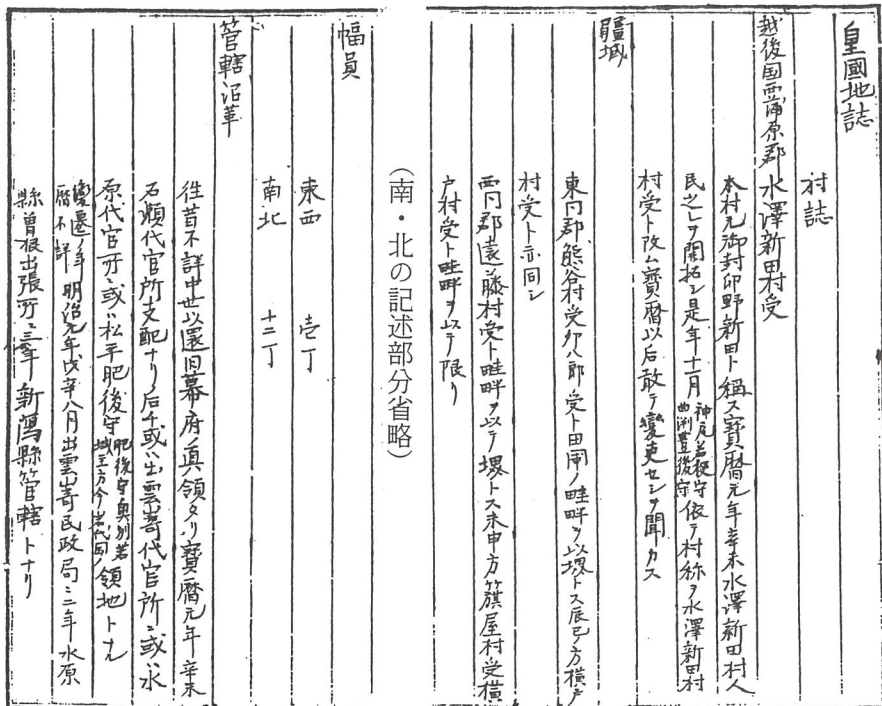 皇國地誌
村誌
越後国西蒲原郡 水澤新田村受
本村元御封印野新田ト稱ス寳暦元年辛未水澤新田村人
民之レヲ開拓シ是年十一月神尾若狭守曲渕豊後守依テ村称ヲ水澤新田村
村受ト改ム寳暦以后敢テ変更セシヲ聞カス
疆域
東同郡熊谷村受夘八郎受ト田甫ノ畦畔ヲ以堺トス辰巳ノ方横戸
村受ト亦同シ
西同郡遠藤村受ト畦畔ヲ以テ堺トス未申方簱屋村受横
戸村受ト畦畔ヲ以テ限リ
（南・北の記述部分省略）
幅員
東西 壱丁
南北 十二丁
管轄沿革
往昔不詳中世以還旧幕府ノ眞領タリ寳暦元年辛未
石瀬代官所支配ナリ后チ或ハ出雲嵜代官所ニ或ハ水
原代官所ニ或ハ松平肥後守肥後守奥州若城主方今領地トナル
変遷ノ年暦不詳明治元年戊辰八月出雲嵜民政局ニ二年水原
縣曽根出張所ニ三年新潟縣管轄トナリ